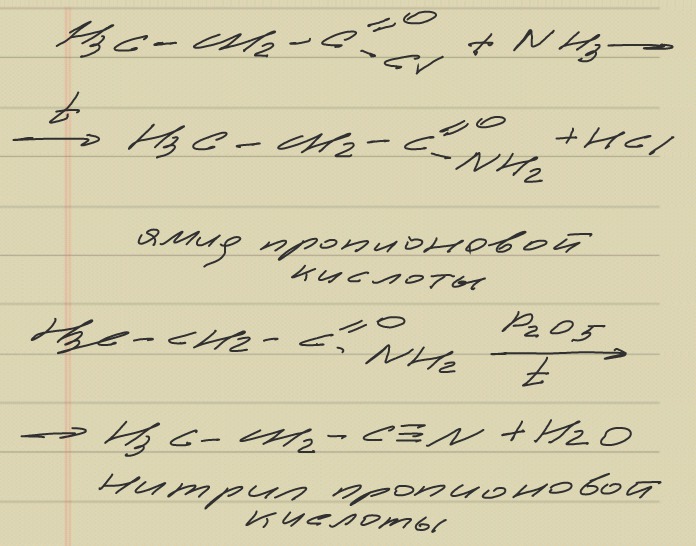 H₃C – CH₂ – C(=O)(–Cl) + NH₃ →
t→ H₃C – CH₂ – C(=O)(–NH₂) + HCl
амид пропионовой
кислоты
H₃C – CH₂ – C(=O)(–NH₂) P₂O₅→t
→ H₃C – CH₂ – C≡N + H₂O
нитрил пропионовой
кислоты